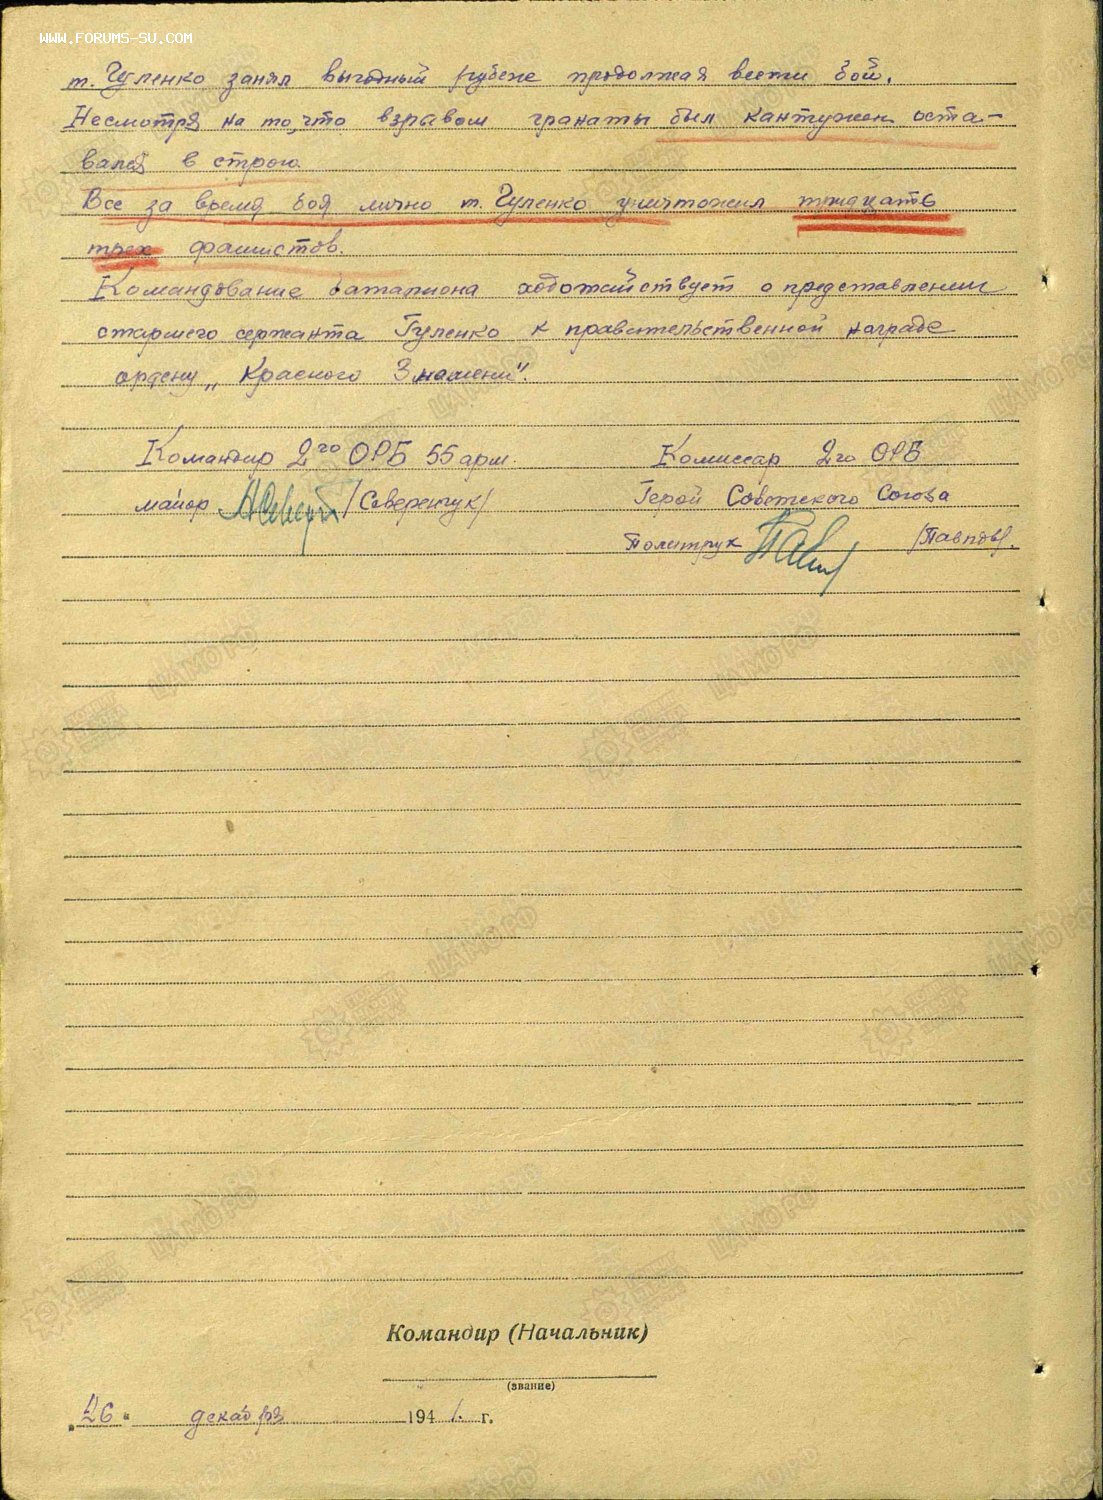 WWW.FORUMS-SU.COM
т. Гуленко занял выгодный рубеже продолжая вести бой.
Несмотря на то, что взрывом гранаты был кантужен оста-
вался в строю.
Все за время боя лично т. Гуленко уничтожил тридцать
трех фашистов.
Командование баталиона ходотайствует о представлении
старшего сержанта Гуленко к правительственной награде
ордену „Красного Знамени".
Командир 2го ОРБ 55 арм.
майор /Северенчук/
Комиссар 2го ОРБ
Герой Советского Союза
Политрук /Павлов/.
Командир (Начальник)
(звание)
„26" декабря 1941 г.